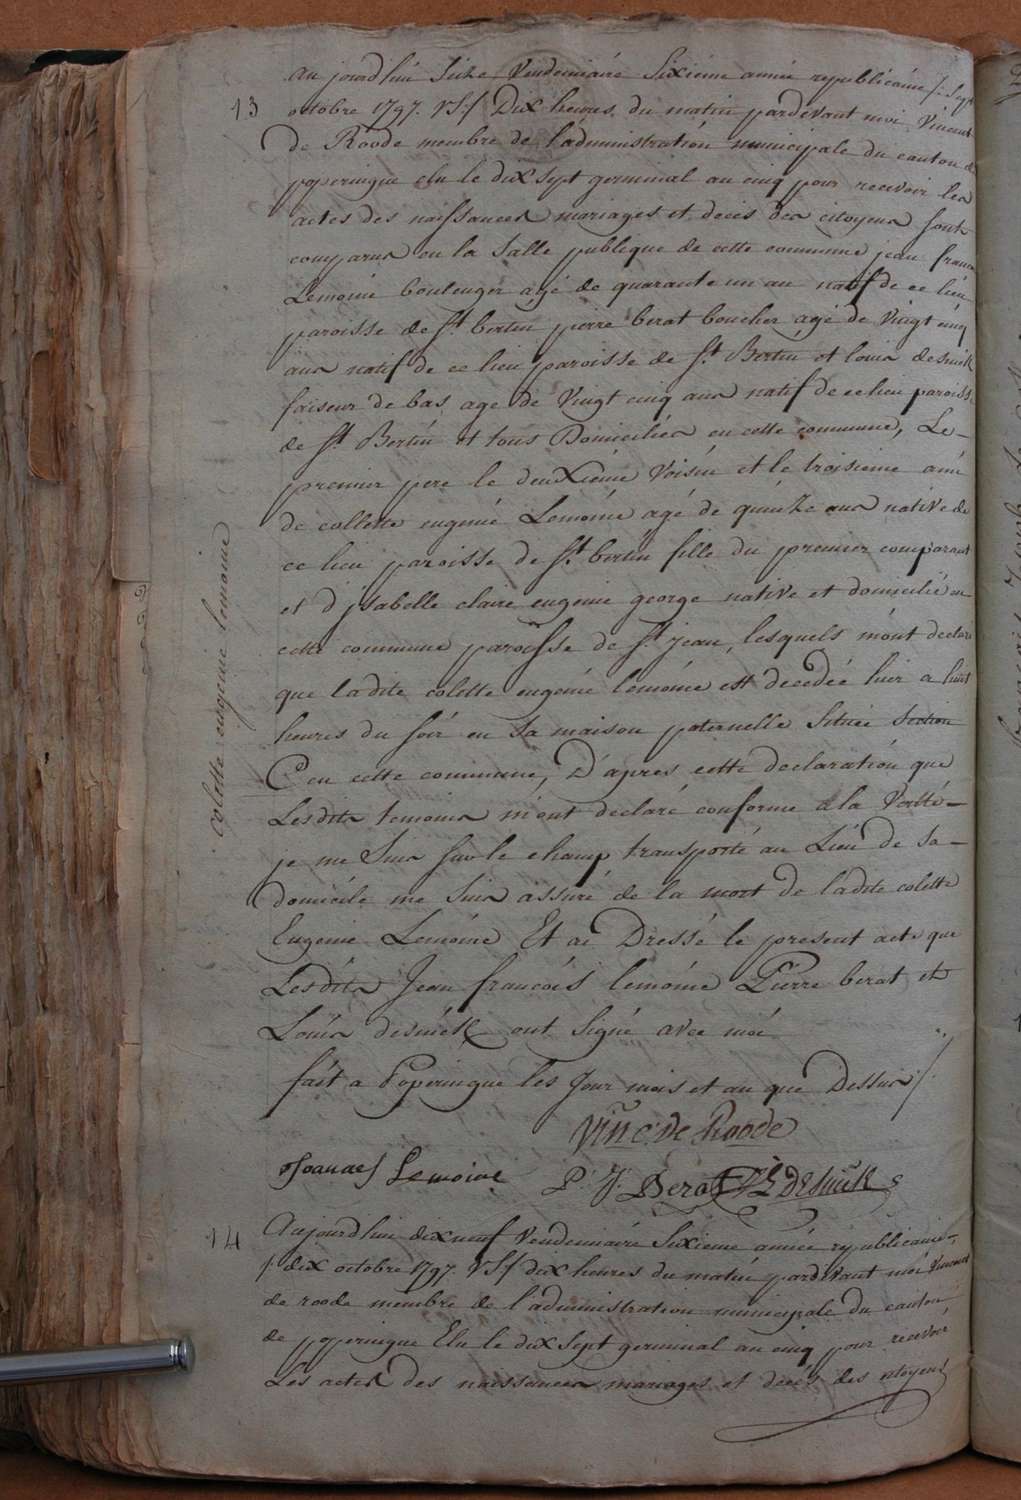 au jourd'hui Seize Vendemiaire Sixieme année republicaine /: Sept
13
octobre 1797. VS:/ Dix heures du matin pardevant moi Vincent
De Roode membre de l'administration municipale du canton de
poperingue elu le dix sept germinal an cinq pour recevoir les
actes des naissances mariages et decès des citoyens sont
comparus en la Salle publique de cette commune jean francois
Lemoine boulenger agé de quarante un an natif de ce lieu
paroisse de St bertin pierre berat boucher agé de Vingt cinq
ans natif de ce lieu paroisse de St Bertin et louis desnick
faiseur de bas agé de Vingt cinq ans natif de ce lieu paroisse
de St Bertin et tous Domiciliés en cette commune, Le-
premier pere le deuxième Voisin et le troisieme ami
de collette eugenie Lemoine agé de quinze ans native de
ce lieu paroisse de St bertin fille du premier comparant
et d'ysabelle claire eugenie george native et domicilié en
cette commune paroisse de St jean, lesquels m'ont declaré
que ladite colette eugenie lemoine est decedée hier a huit
heures du soir en sa maison paternelle Située Section
C en cette commune, D'apres cette declaration que
Lesdits temoins m'ont declaré conforme a la Verité-
je me Suis sur le champ transporté au Lieu de sa-
domicile me Suis assuré de la mort de ladite colette
Eugenie Lemoine Et ai Dressé le present acte que
Lesdits Jean francois lemoine Pierre berat et
Louis desnick ont Signé avec moi
fait a Poperingue les Jour mois et an que Dessus /.
colette eugenie lemoine
Vinc: De Roode
Joannes Lemoine P. J. Berat L desnick
14
Aujourd'hui dixneuf Vendemiaire Sixieme année republicaine
/: dix octobre 1797. VS:/ dix heures du matin pardevant moi Vincent
de roode membre de l'administration municipale du canton
de poperingue Elu le dix Sept germinal an cinq pour recevoir
Les actes des naissances mariages et decès des citoyens